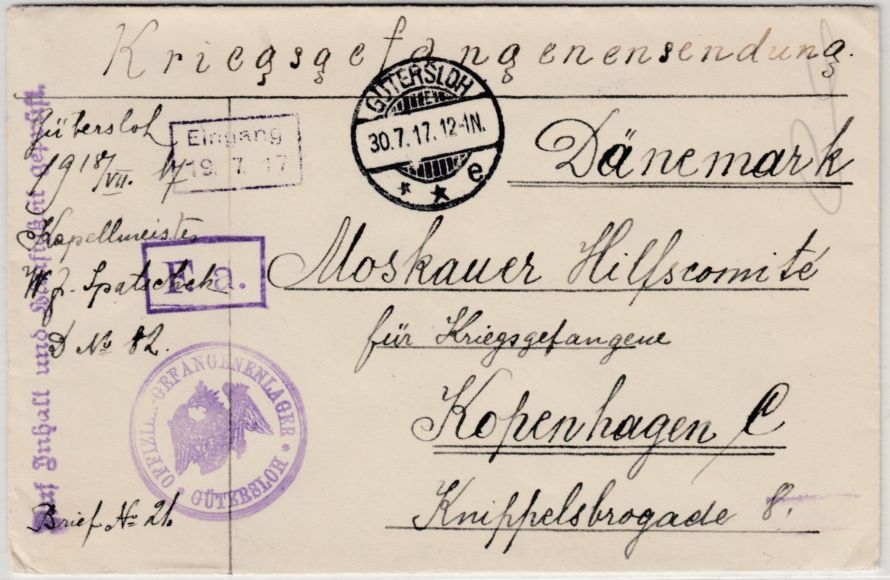 Kriegsgefangenensendung.
Gütersloh
19 18/VII. 17
Kapellmeister
W. J. Spatschek
D No 82.
Brief No 21.
Eingang
19. 7. 17
F. a.
GÜTERSLOH
30.7.17.12-1N.
* * e
Dänemark
Moskauer Hilfscomité
für Kriegsgefangene
Kopenhagen C
Knippelsbrogade 8.
OFFIZIER-GEFANGENENLAGER
* GÜTERSLOH *
Auf Inhalt und geprüft.